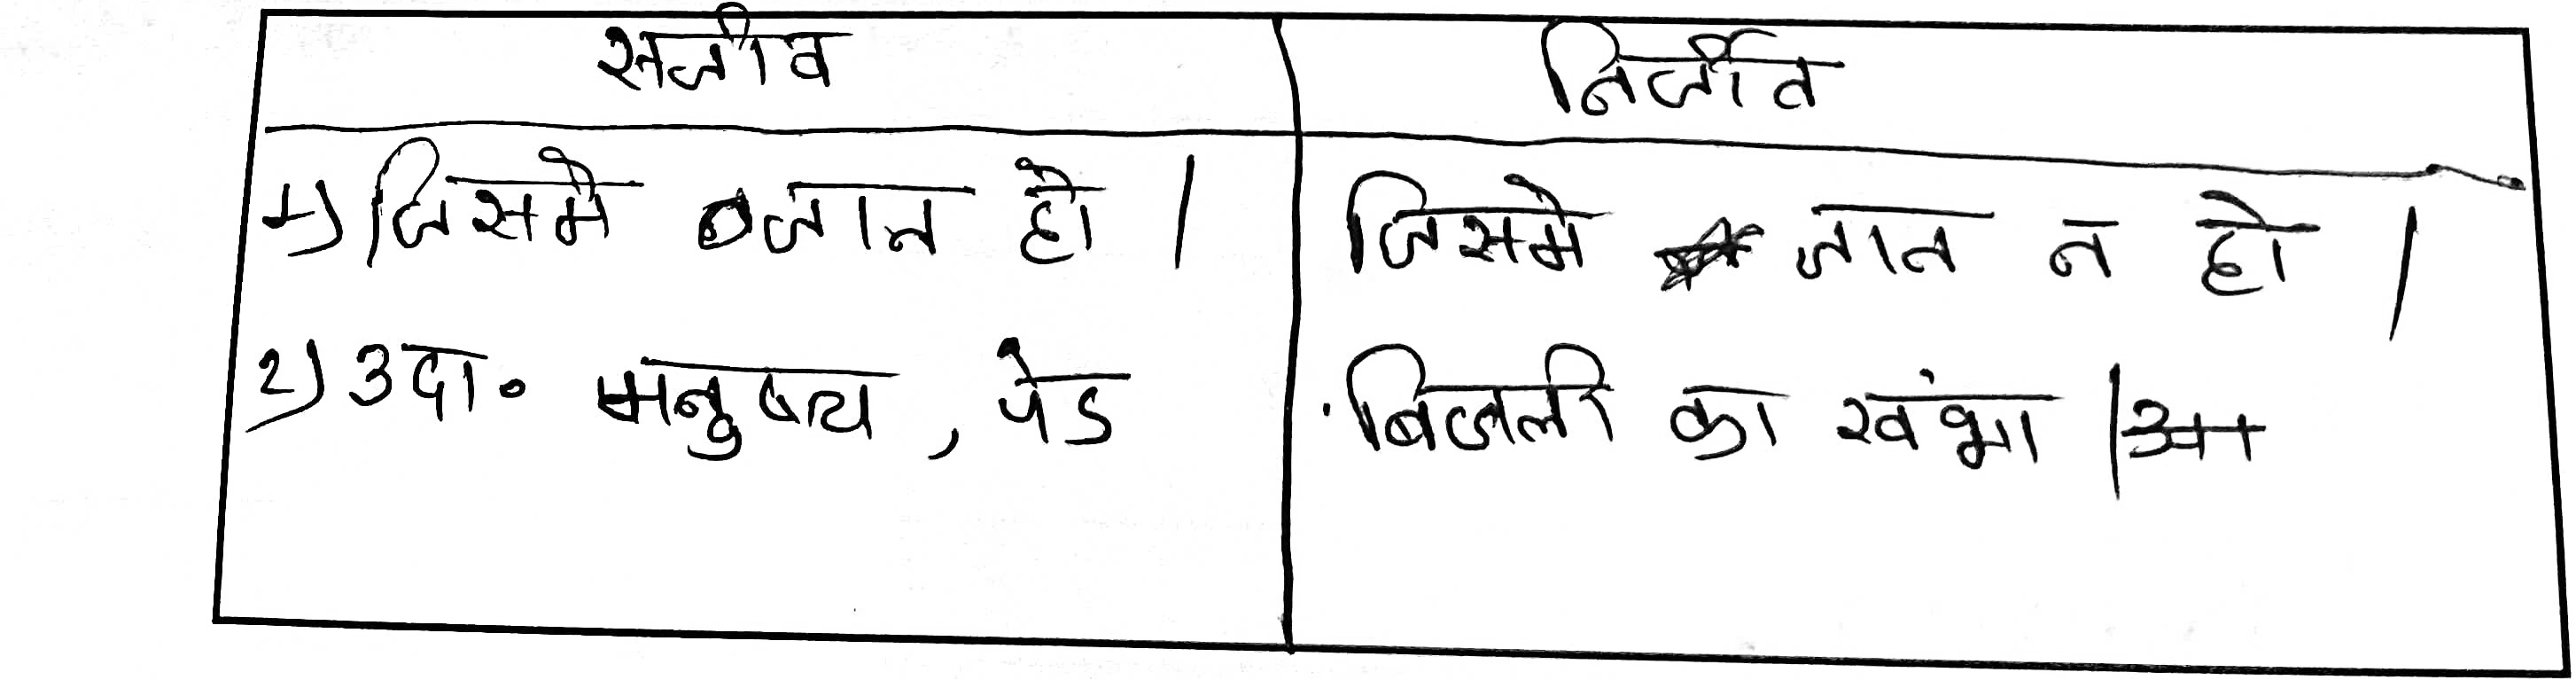 सजीव
निर्जीव
1) जिसमे जान हो ।
जिसमे जान न हो ।
2) उदा॰ मनुष्य , पेड
बिजली का खंभा ।